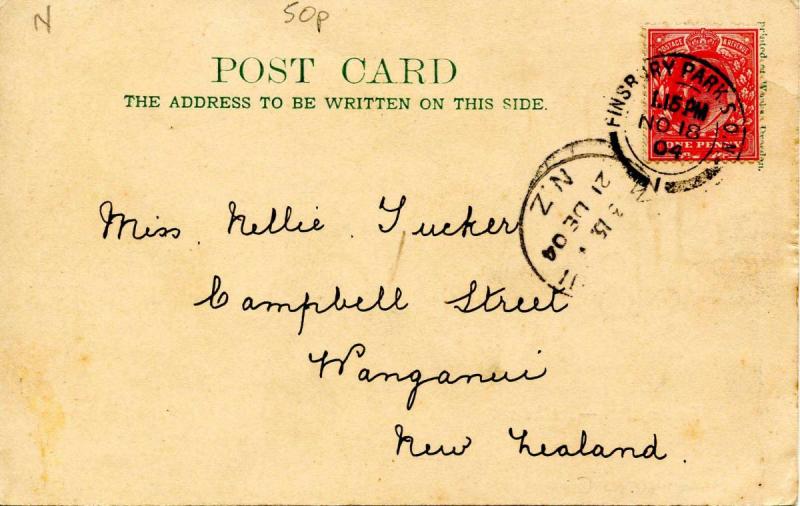 N
50p
POST CARD
THE ADDRESS TO BE WRITTEN ON THIS SIDE.
POSTAGE & REVENUE
ONE PENNY
FINSBURY PARK S.O. N
1.15 PM
NO 18
04
1
3 15
21 DE 04
N.Z
Miss. Nellie Tucker
Campbell Street
Wanganui
New Zealand.
Printed at